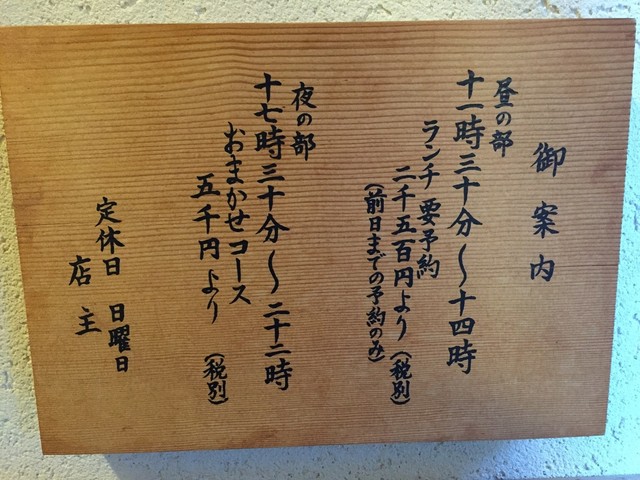 御案内
昼の部
十一時三十分～十四時
ランチ 要予約
二千五百円より（税別）
（前日までの予約のみ）
夜の部
十七時三十分～二十二時
おまかせコース
五千円より（税別）
定休日 日曜日
店主